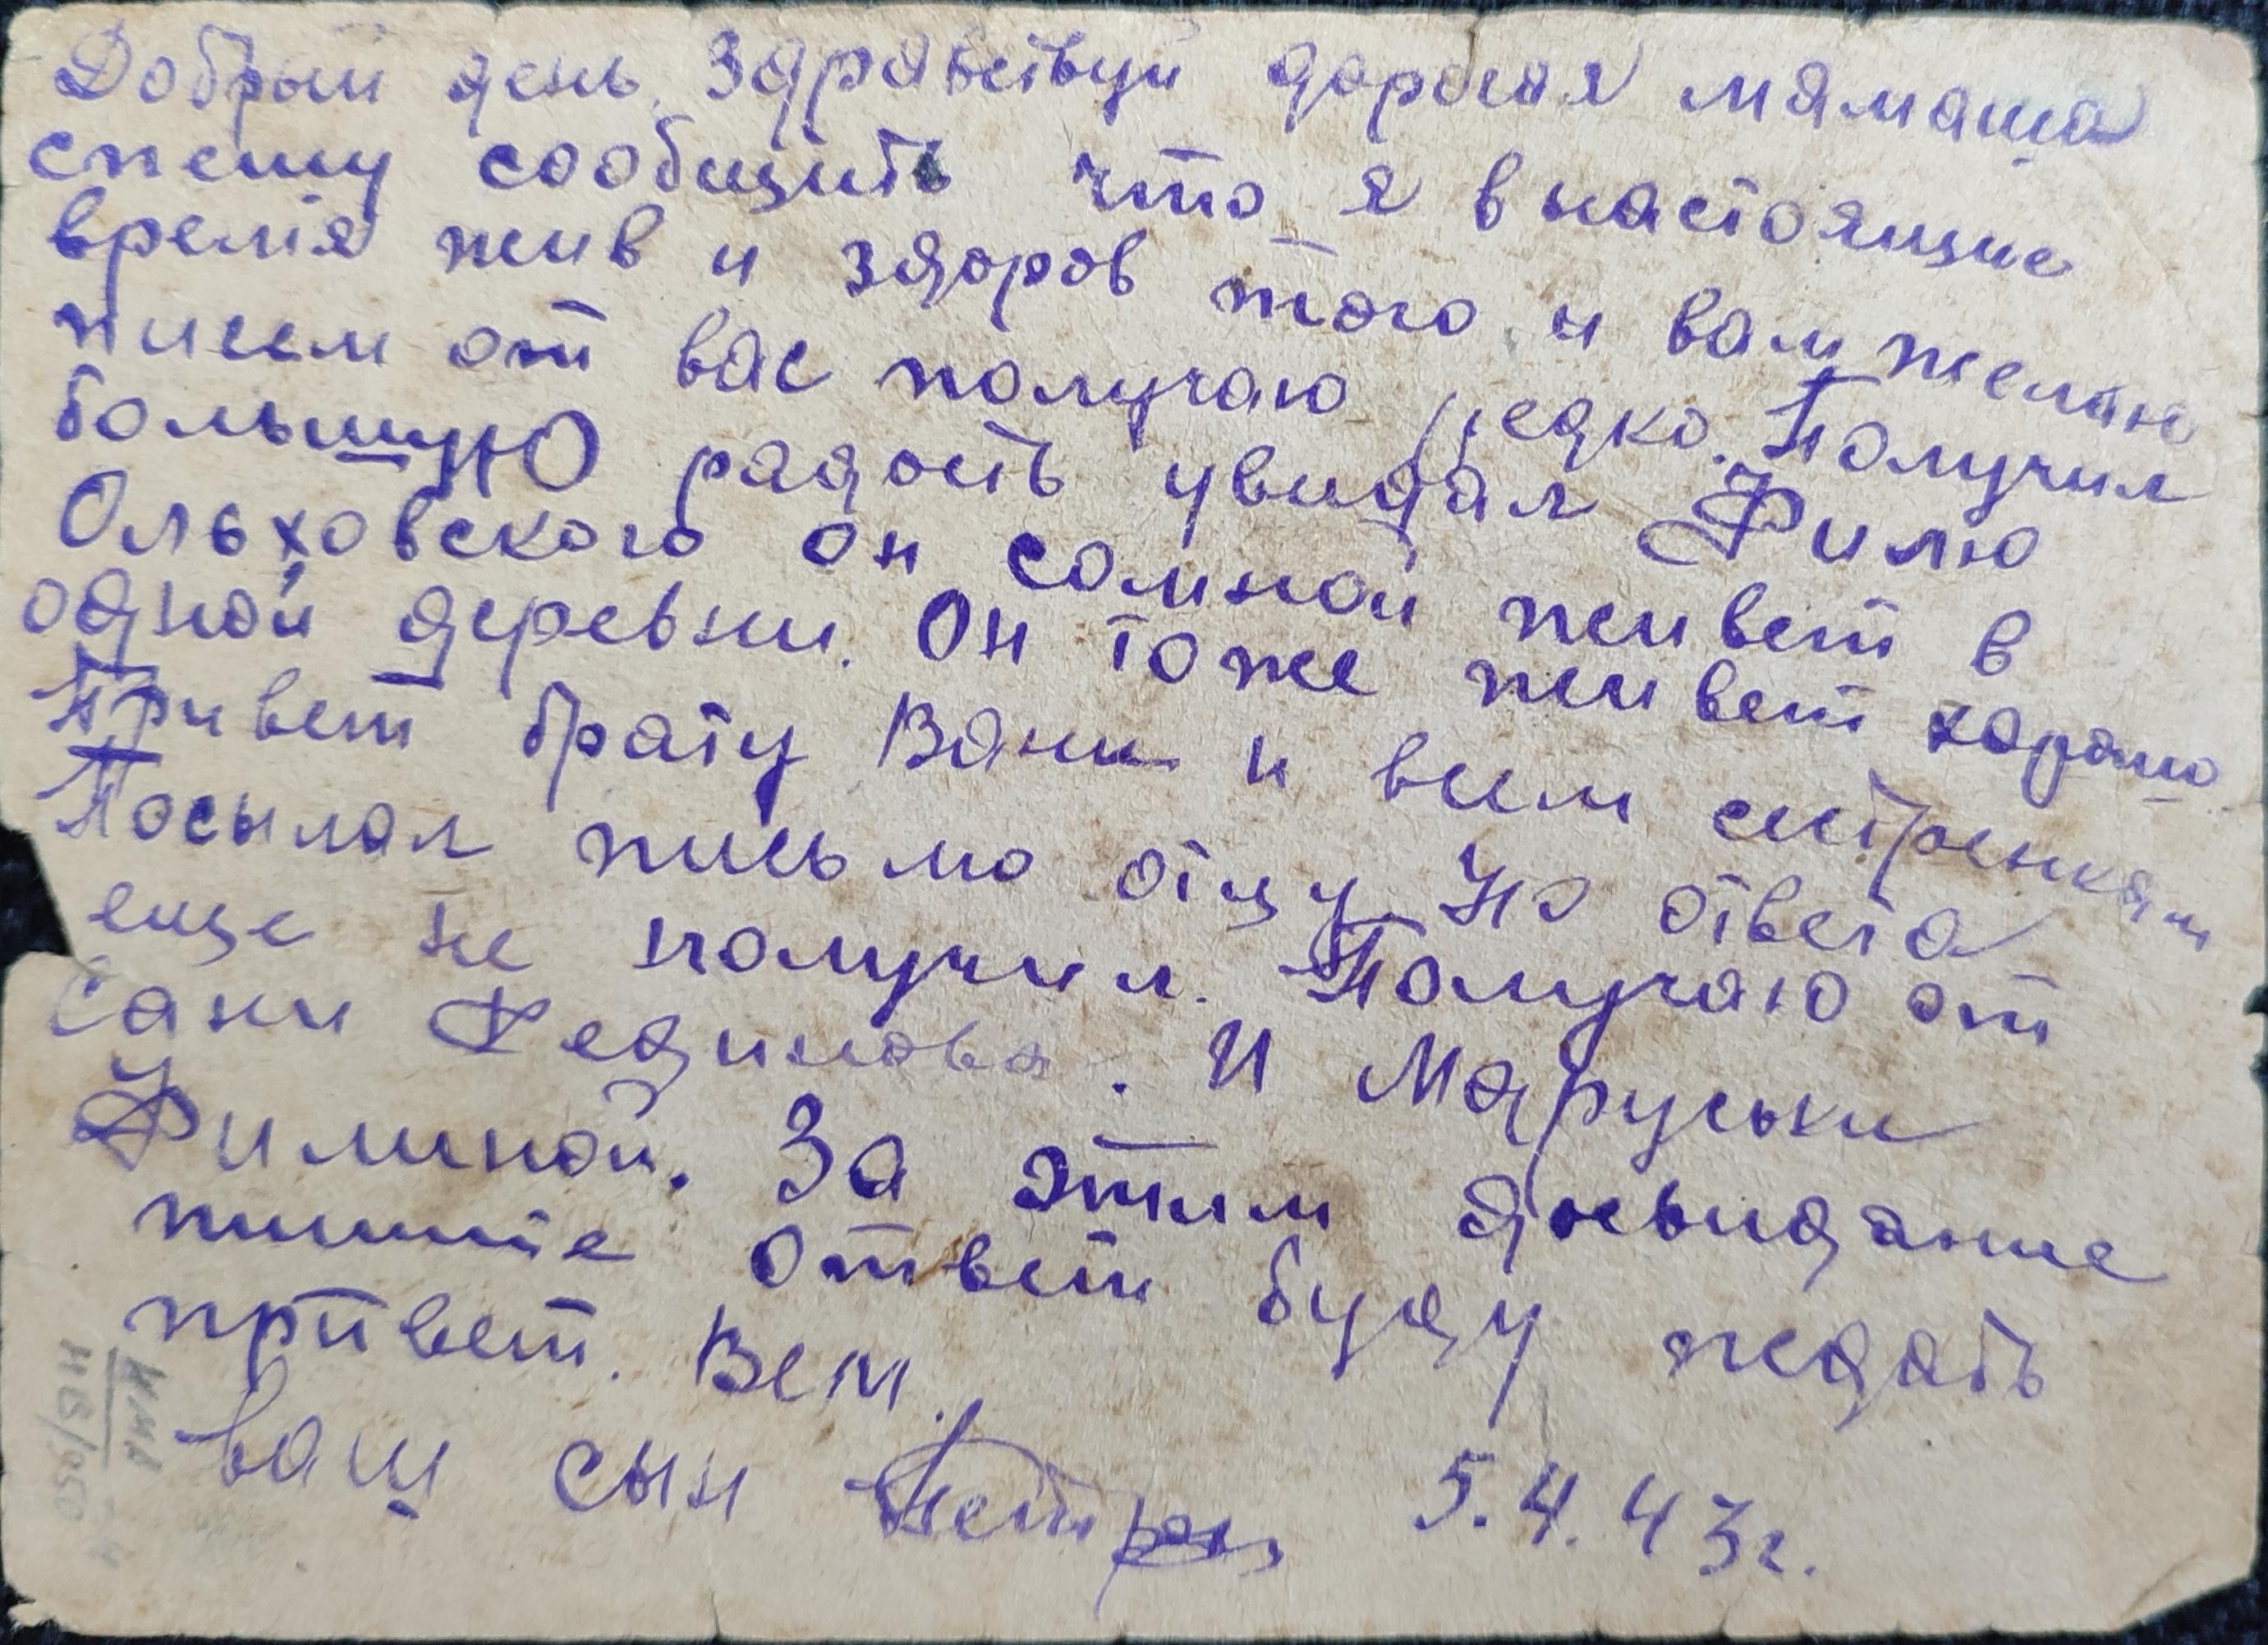 Добрый день. Здравствуй дорогая мамаша
спешу сообщить что я в настоящие
время жив и здоров того и вам желаю
писем от вас получаю редко. Получил
большую радость увидал Филю
Ольховского он сомной живет в
одной деревни. Он тоже живет хорошо
Привет брату Вани и всем сестренкам
Посылал письмо отцу но ответа
еще не получил. Получаю от
Сани Фединова. И Маруськи
Филиной. За этим досвидание
пишите ответ буду жедать
привет. Всем.
ваш сын 5.4.43г.
КМЛ
НВ/050